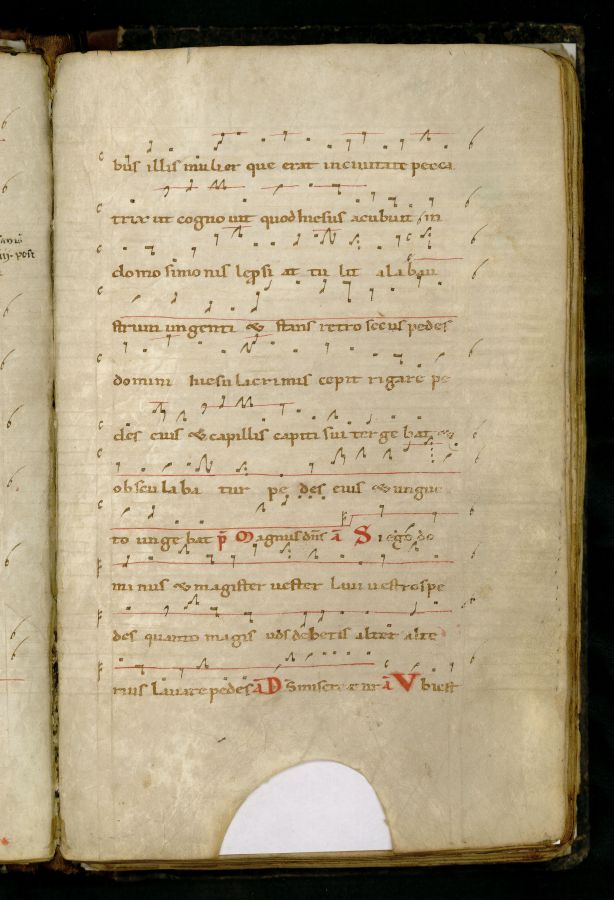 bus illis mulier que erat in ciuitate pecca
trix ut cogno uit quod hiesus acubuit in
domo simo nis lepsi at tu lit ala bau
strum ungenti & stans retro secus pedes
domini hiesu lacrimis cepit rigare pe
des eius & capillis capiti sui ter ge bat &
obscu la ba tur pe des eius & ungue
to unge bat p̄ Magnus dn̄s ā Si ego do
mi nus & magister uester laui uestros pe
des quanto magis uos debetis alter alte
rius Lauare pedes ā Ds̄ misere at nr̄ ā Vbi est